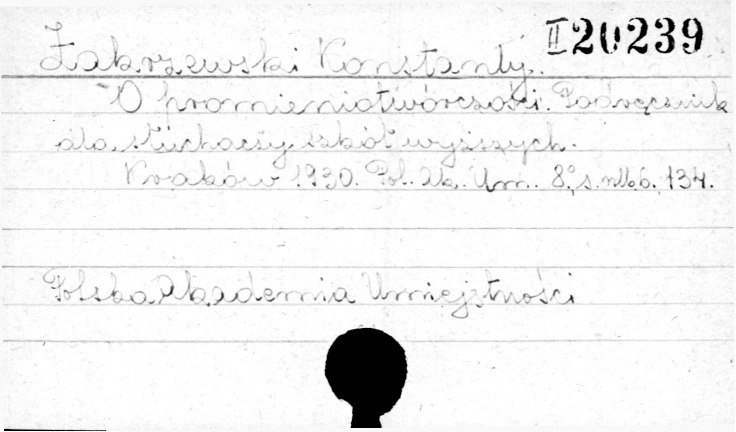 II 20239
Zakrzewski Konstanty.
O promieniotwórczości. Podręcznik
dla słuchaczy szkół wyższych.
Kraków 1930. Pol. Ak. Um. 8°, s. nlb. 6, 134.
Polska Akademia Umiejętności